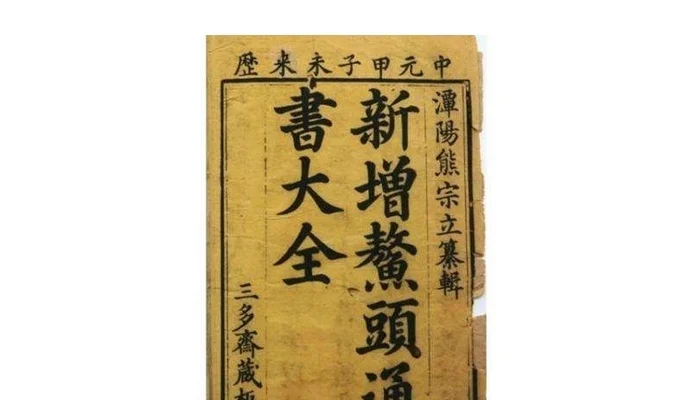 中元甲子未来歴
潭陽熊宗立纂輯
新增鰲頭通
書大全
三多齋藏板